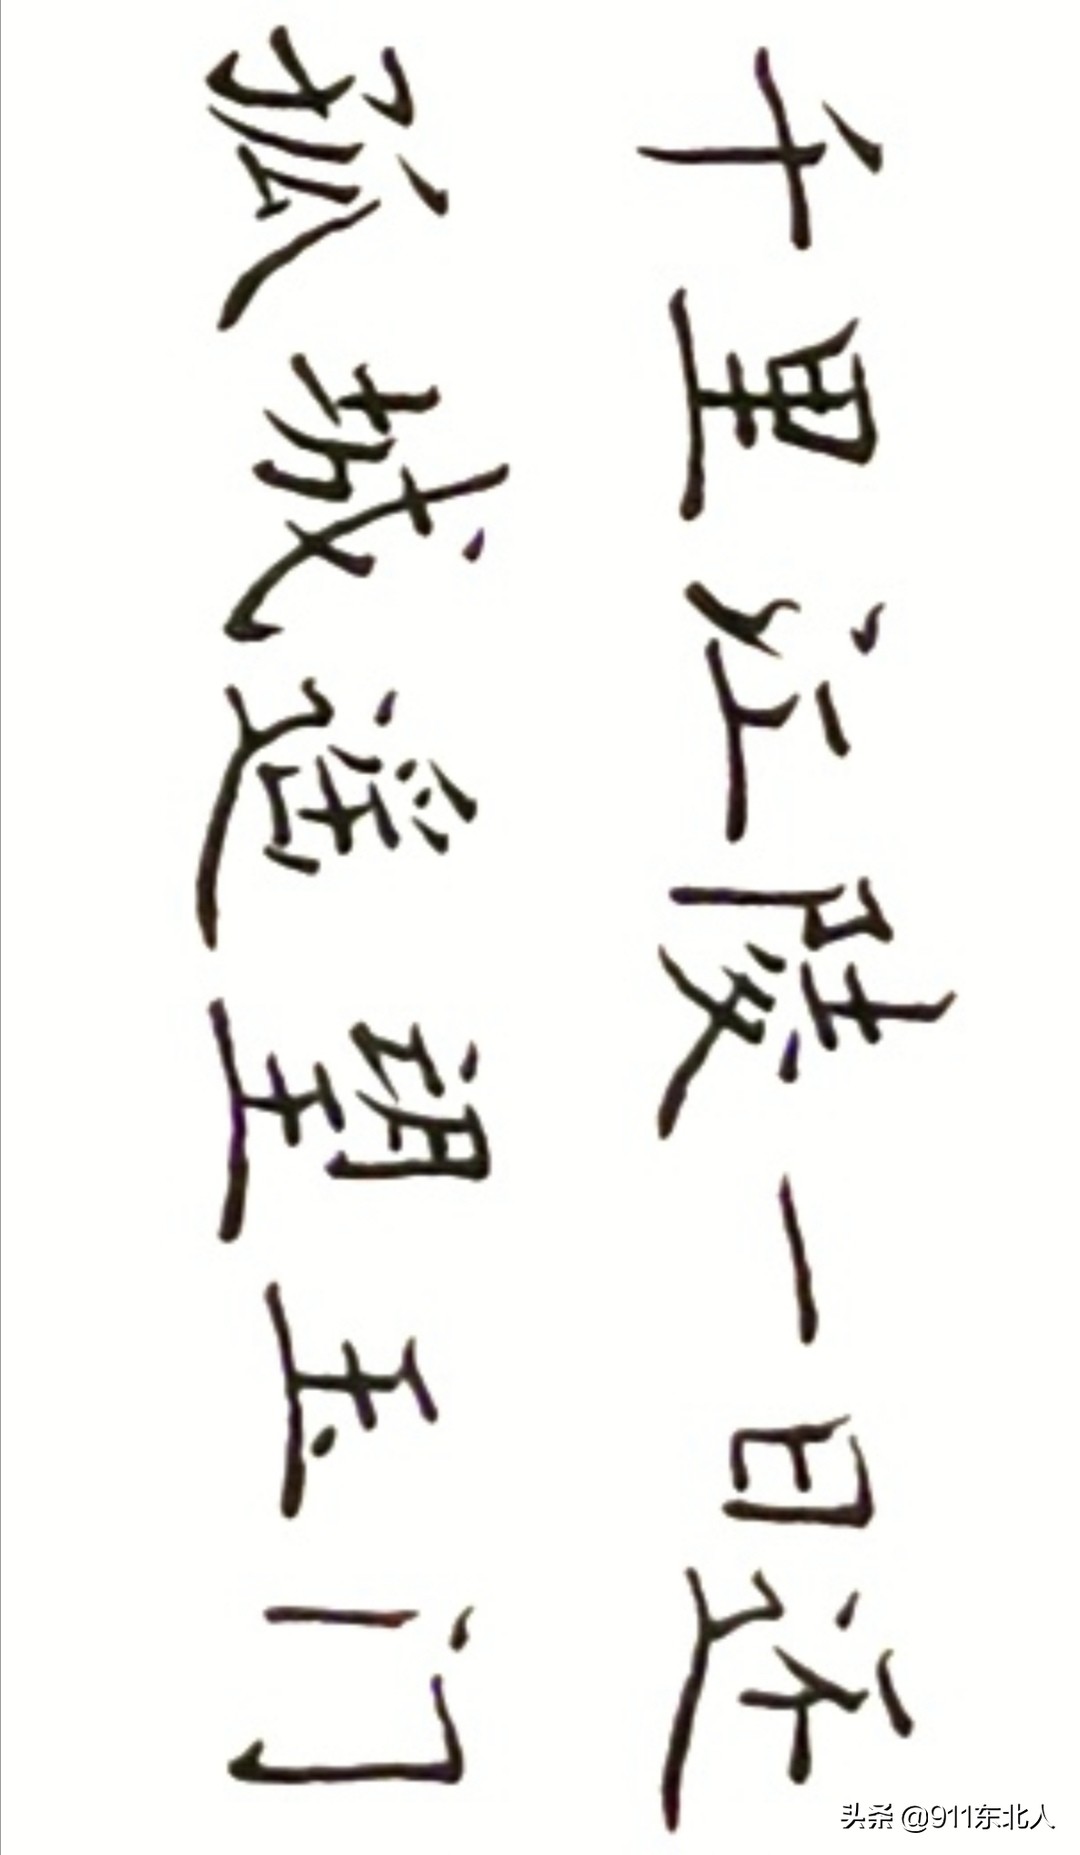 千里江陵一日还
孤城遥望玉门
头条 @911东北人